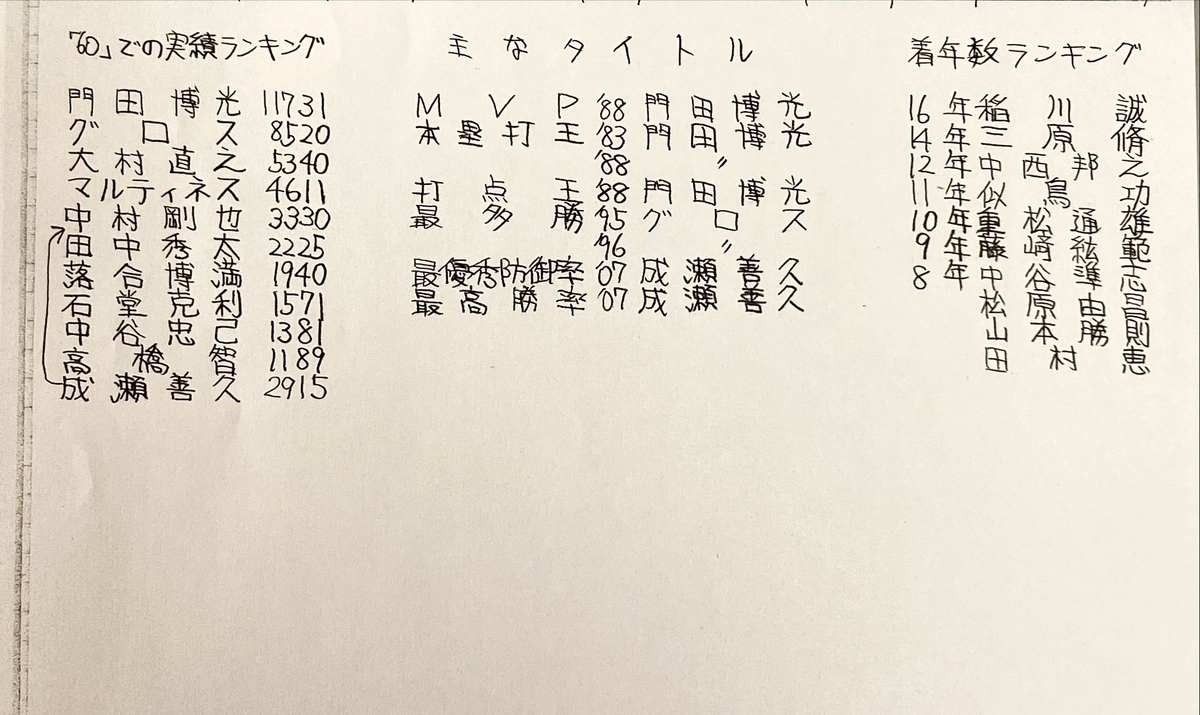 「60」での実績ランキング
門田博光 11731
グロス 8520
大村直之 5340
マルティネス 4611
中村剛也 3330
田中秀太 2225
落合博満 1940
石堂克利 1571
中谷忠己 1381
高橋智 1189
成瀬善久 2915
主なタイトル
MVP '88 門田博光
本塁打王 '83 門田博光
'88 〃
打点王 '88 門田博光
最多勝 '95 グロス
'96 〃
最優秀防御率 '07 成瀬善久
最高勝率 '07 成瀬善久
着年数ランキング
16年 稲川誠
14年 三原脩
12年 中西邦之
11年 似鳥功
10年 重松通雄
9年 藤崎紘範
8年 中谷準志
松原由昌
山本勝則
田村恵